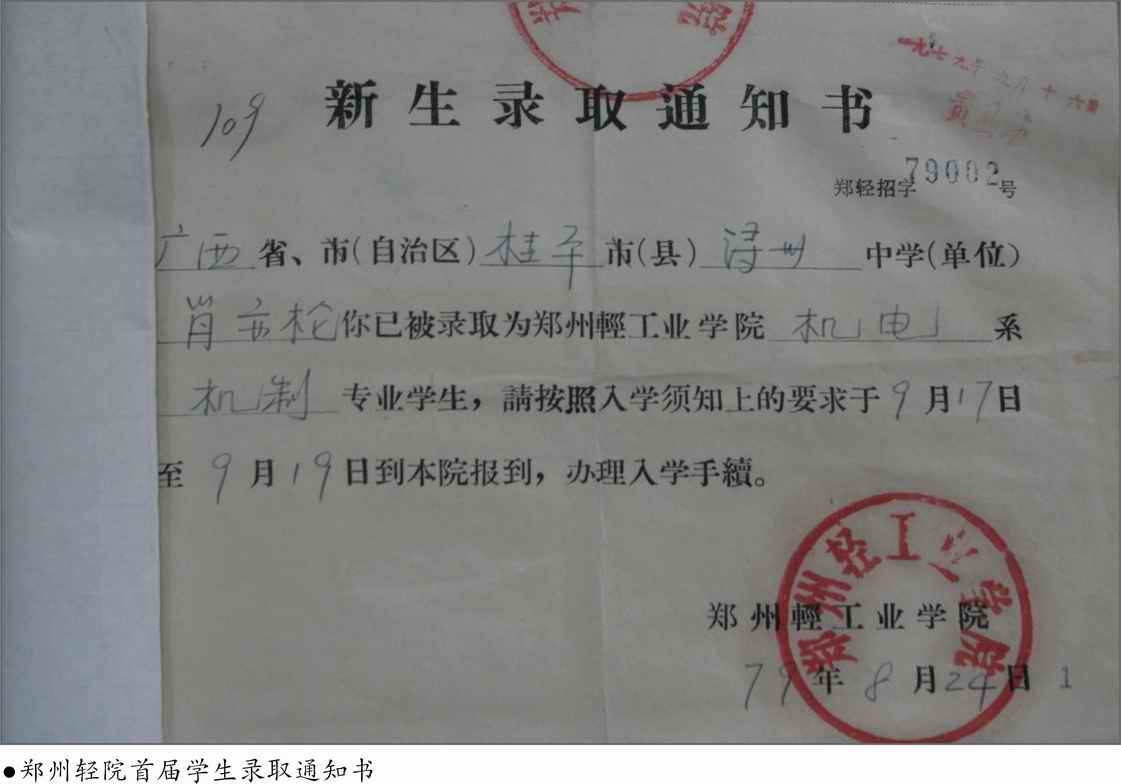 郑 院
一九七九年九月十六日
109
新生录取通知书
郑轻招字79002号
广西省、市(自治区)桂平市(县)浔州中学(单位)
肖亦枪你已被录取为郑州輕工业学院机电系
机制专业学生，請按照入学须知上的要求于9月17日
至9月19日到本院报到，办理入学手續。
郑州轻工业学院
郑州輕工业学院
79年8月24日 1
●郑州轻院首届学生录取通知书